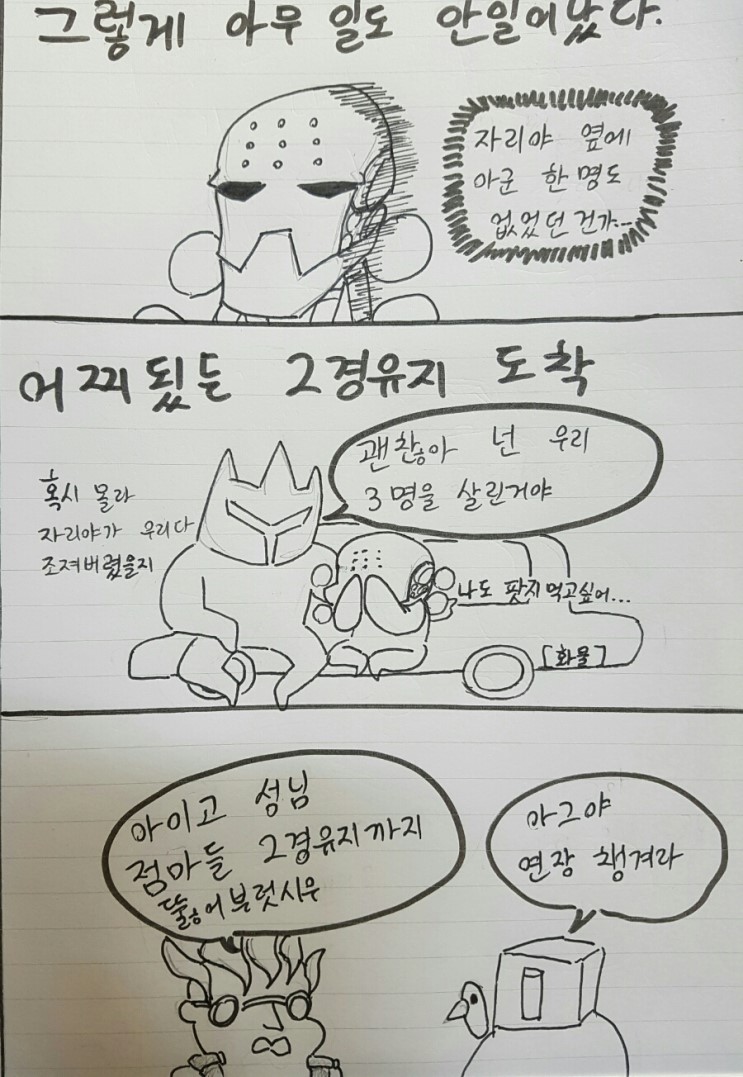 그렇게 아무 일도 안일어났다.
자리야 옆에
아군 한명도
없었던 건가...
어찌됬든 2경유지 도착
괜찮아 넌 우리
3명을 살린거야
혹시 몰라
자리야가 우리다
조져버렸을지
나도 팟지먹고싶어...
[화물]
아이고 성님
점마들 2경유지까지
뚫어부렀시유
마그야
연장 챙겨라